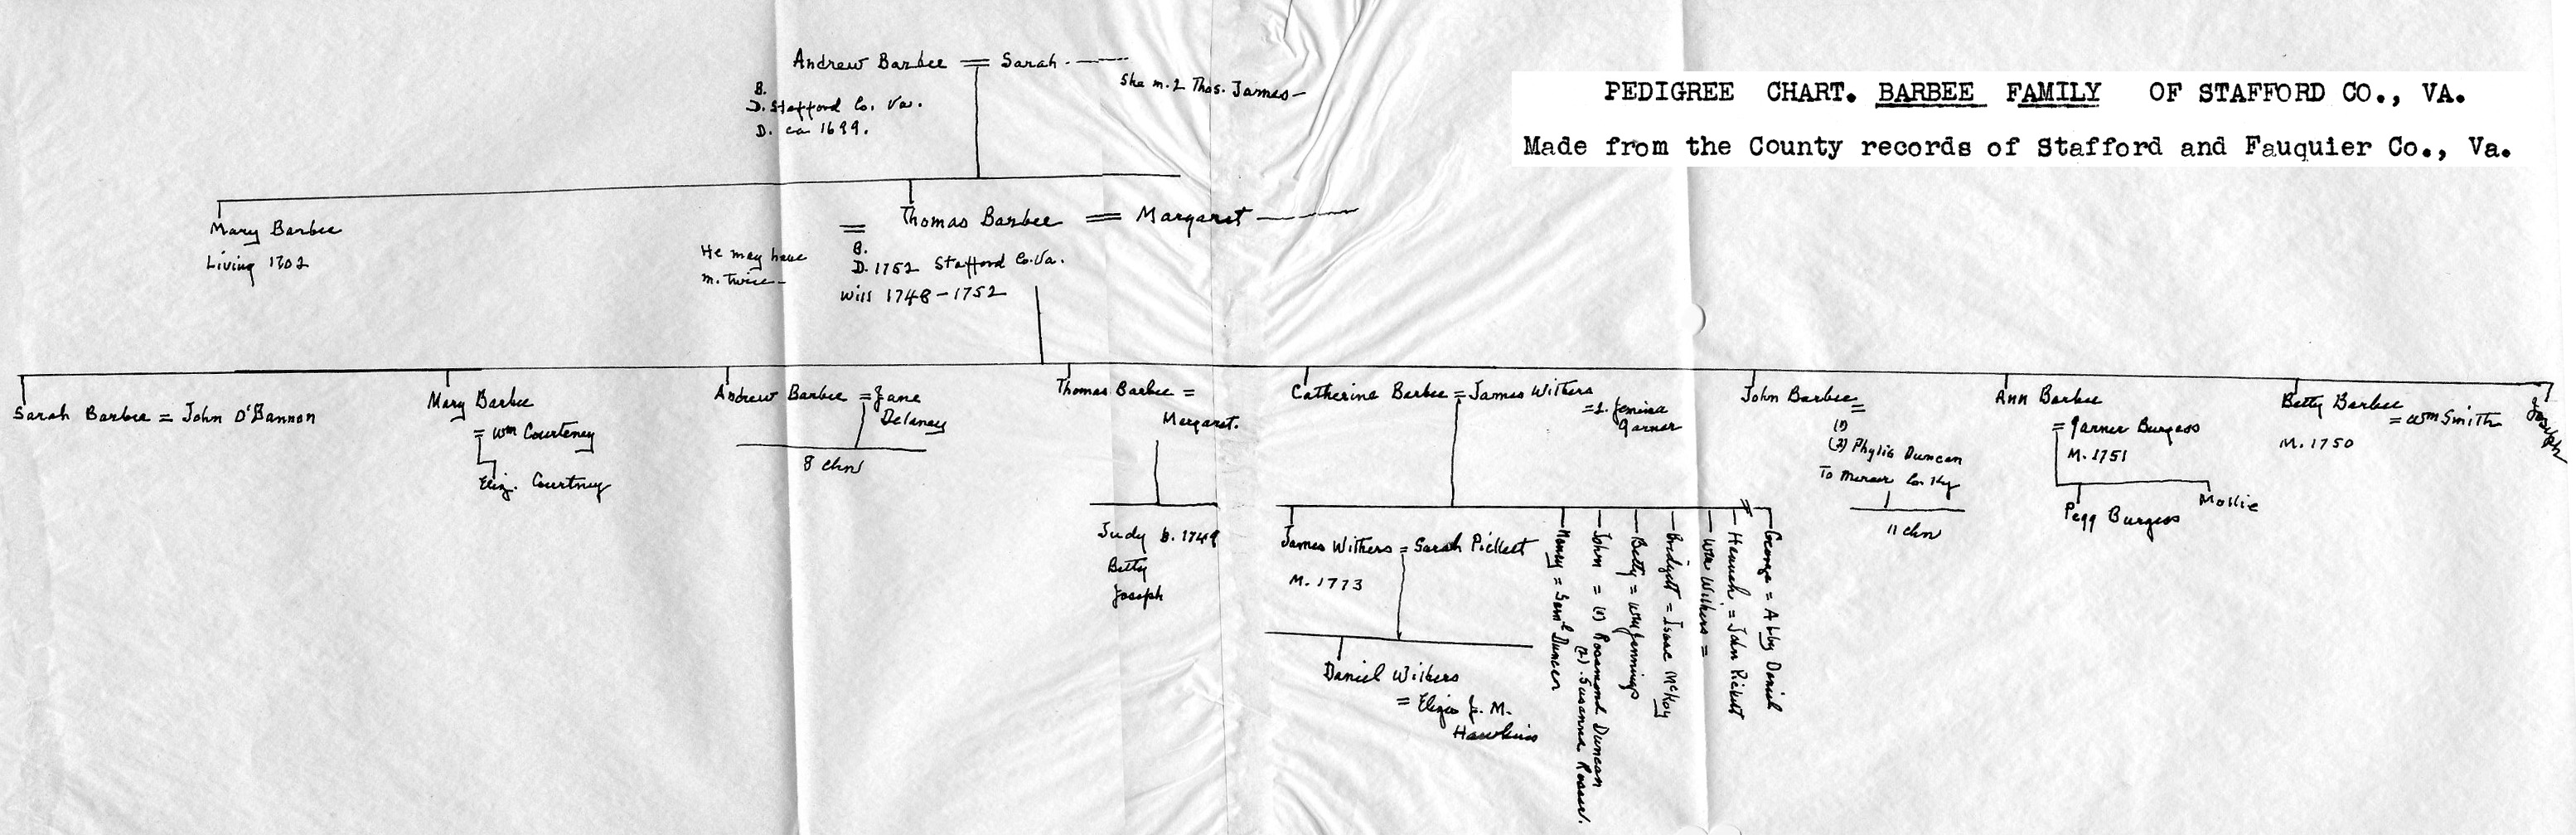 Andrew Barbee = Sarah
She m. 2 Thos. James
B.
D. Stafford Co. Va.
D. ca 1699.
PEDIGREE CHART. BARBEE FAMILY OF STAFFORD CO., VA.
Made from the County records of Stafford and Fauquier Co., Va.
Mary Barbee
Living 1702
= Thomas Barbee = Margaret
He may have
m. twice
B.
D. 1752 Stafford Co. Va.
Will 1748-1752
Sarah Barbee = John O'Bannon
Mary Barbee
= Wm Courteney
Eliz. Courtney
Andrew Barbee = Jane
Delaney
8 chn
Thomas Barbee =
Margaret.
Judy b. 1749
Betty
Joseph
Catherine Barbee = James Withers
Jemima
Garner
James Withers = Sarah Pickett
M. 1773
Daniel Withers
= Eliza J. M.
Hawkins
Nancy = Saml Duncan
John = (1) Rosamond Duncan
(2) Susanna Rosser.
Betty = Wm Jennings
Bridgett = Isaac McKoy
Wm Withers =
Hannah = John Pickett
George = Abby Daniel
John Barbee =
(1)
(2) Phylis Duncan
To Mercer Co. Ky
11 chn
Ann Barbee
= Garner Burgess
M. 1751
Pegg Burgess
Mollie
Betty Barbee
= Wm Smith
M. 1750
Joseph